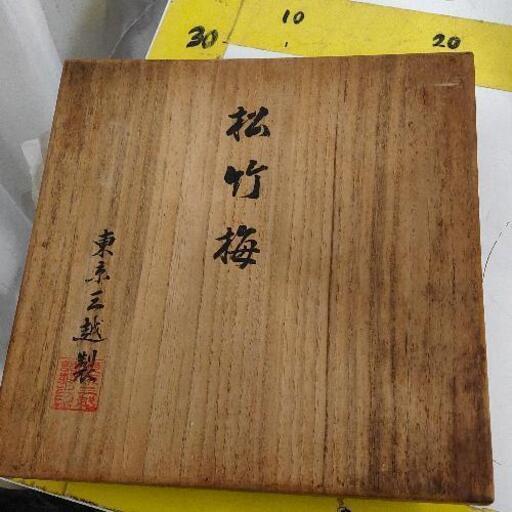 松竹梅
東京三越製
30
10
20